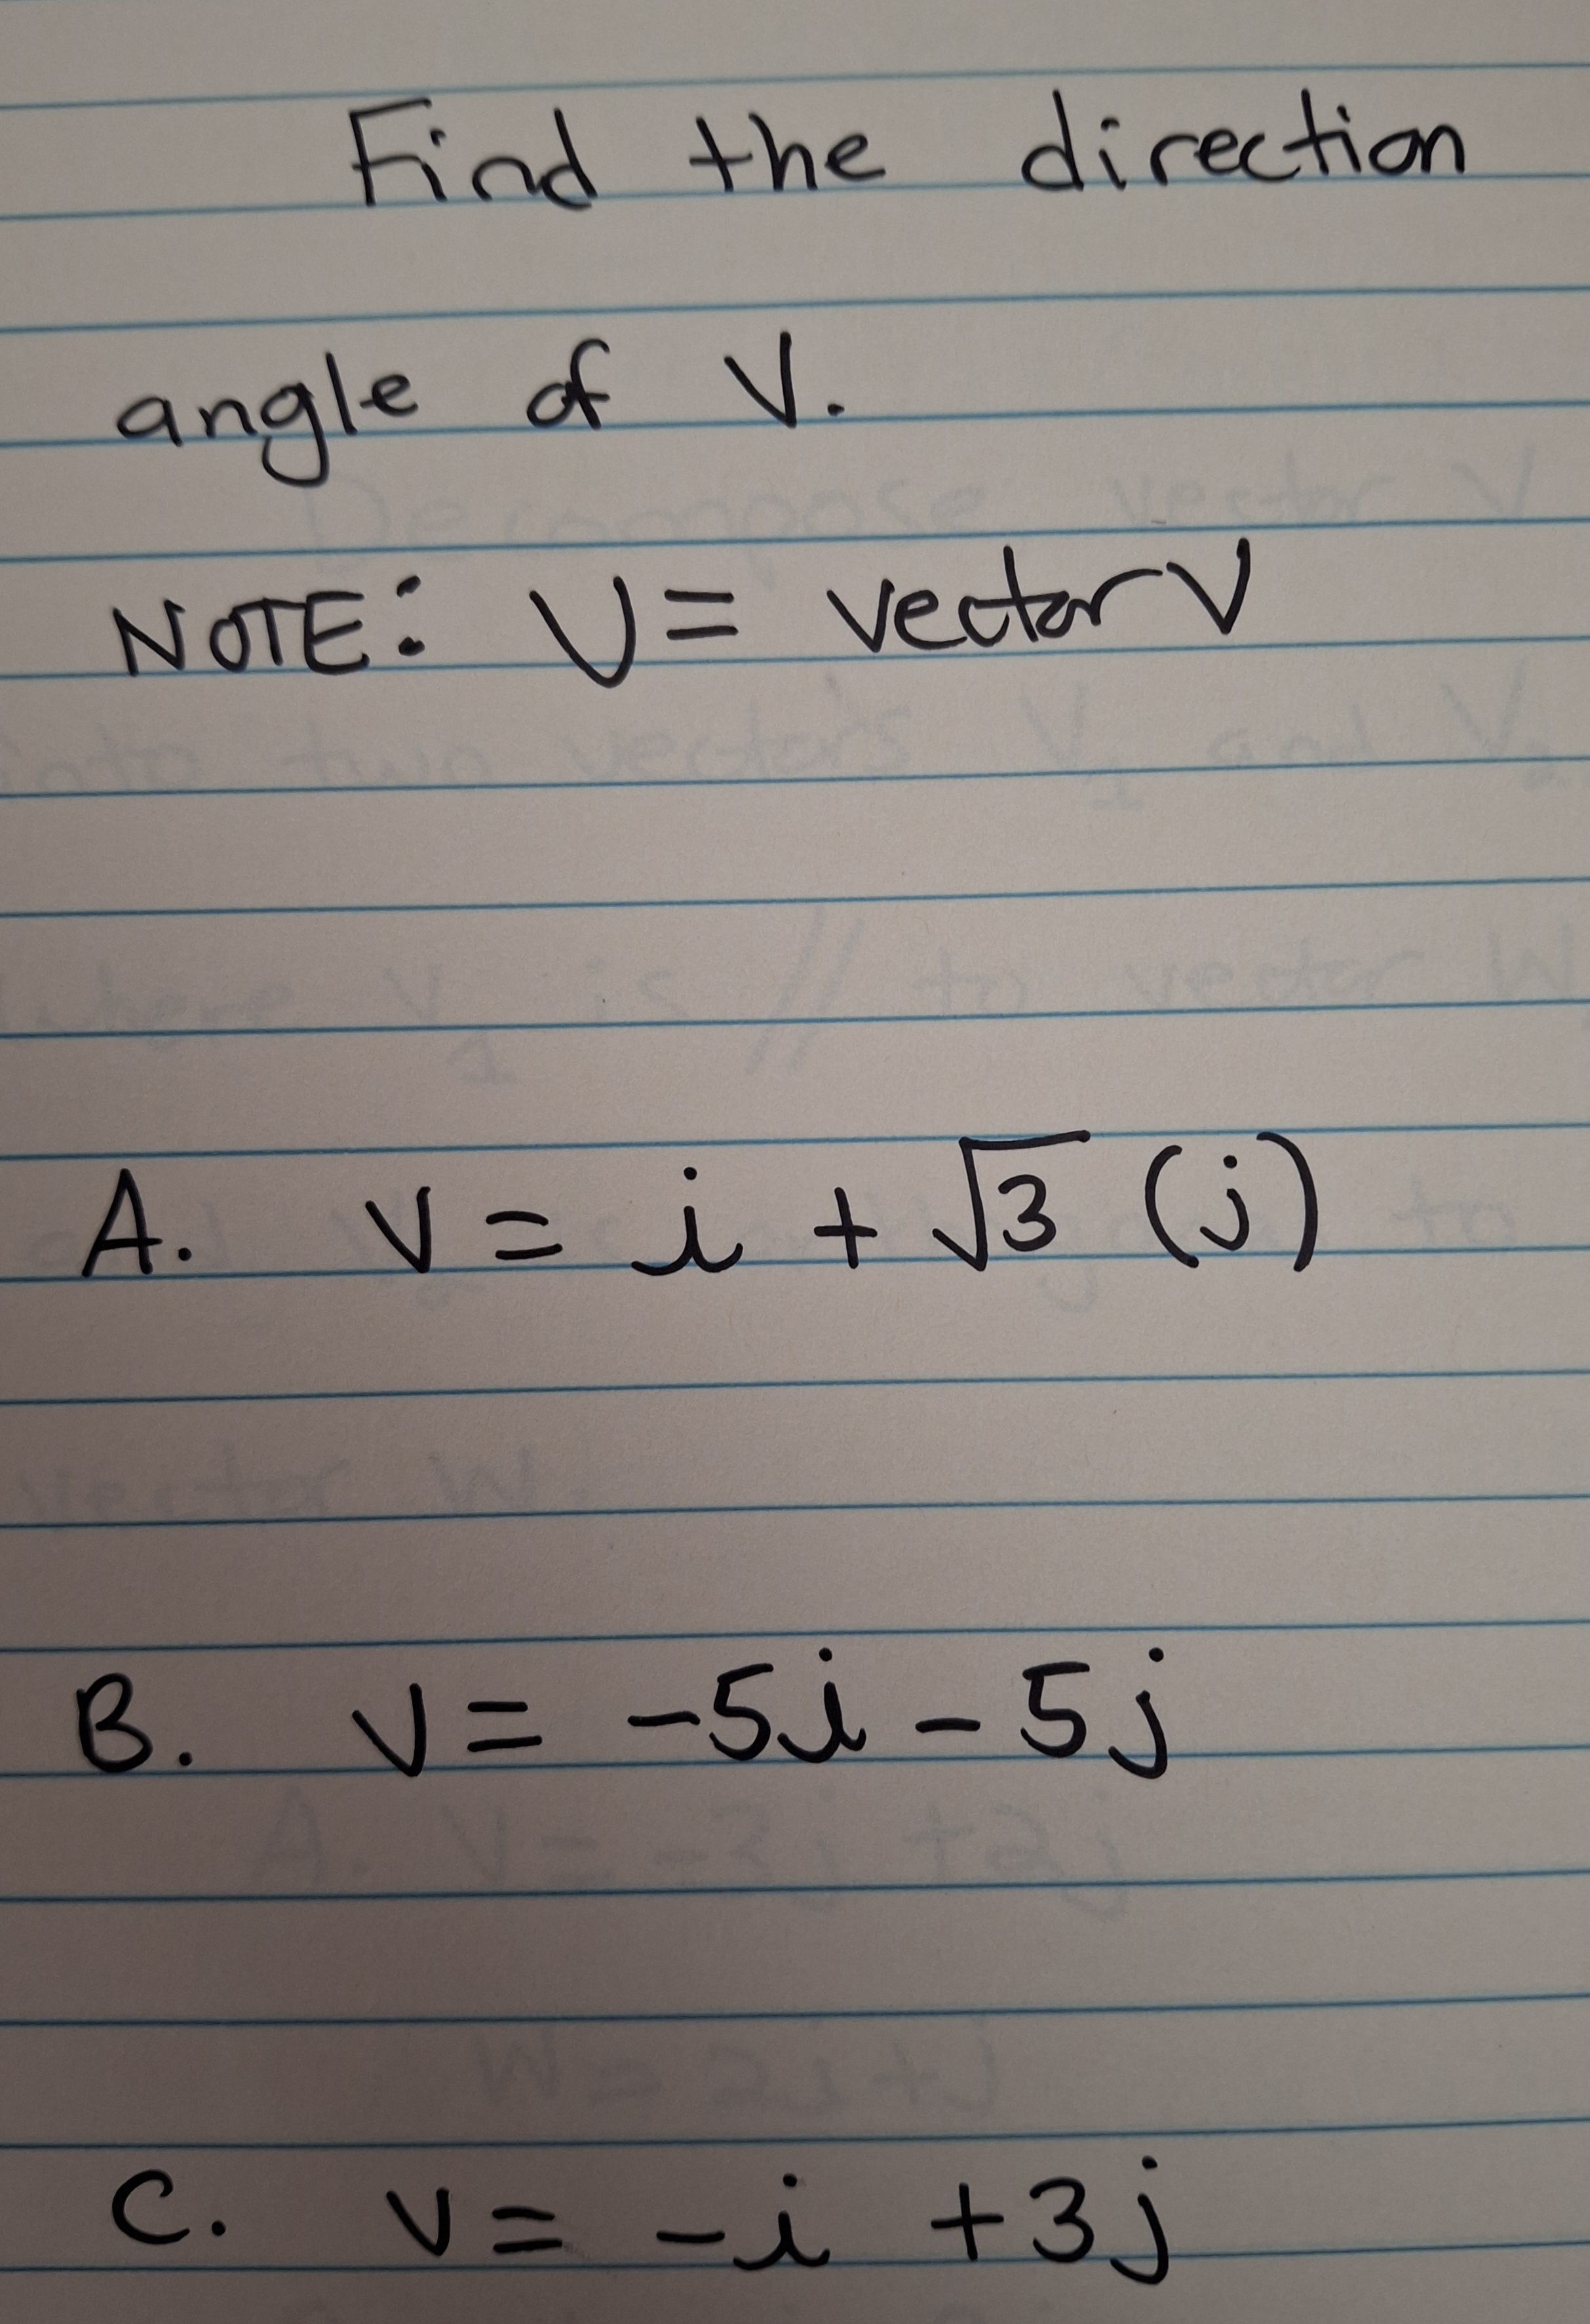 Find the direction
angle of V.
NOTE: V = vector V
A. V = i + √3 (j)
B. V = -5i - 5j
C. V = -i + 3j